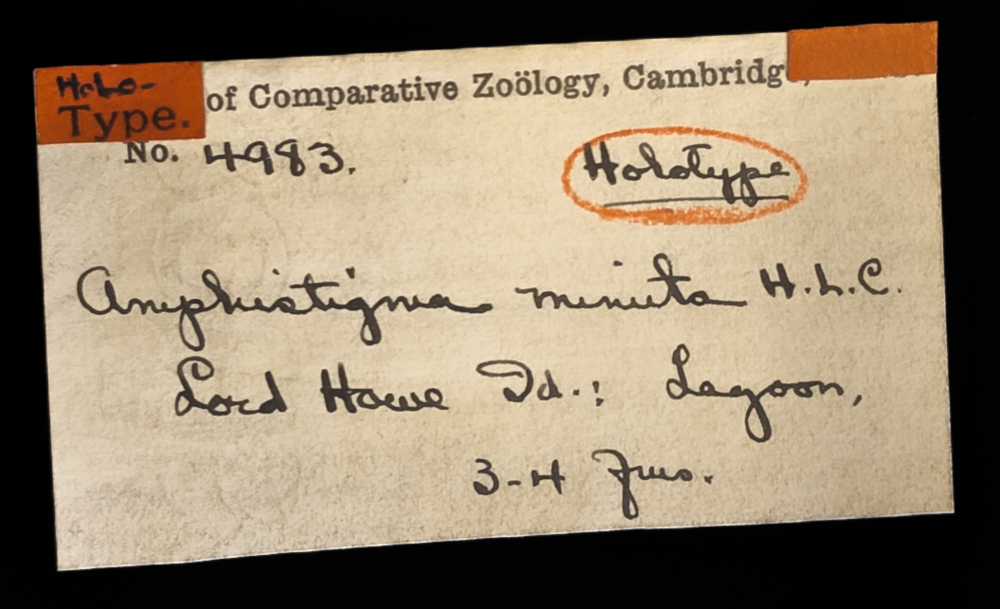 Holo-
Type.
of Comparative Zoölogy, Cambridg
No. 4983.
Holotype
Amphistigma minuta H.L.C.
Lord Howe Id.: Lagoon,
3-4 Fms.